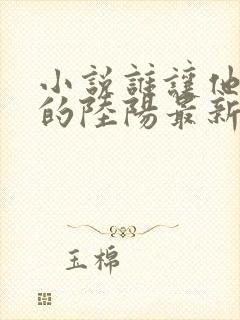 小説誰讓他
的陸陽最新
玉棉